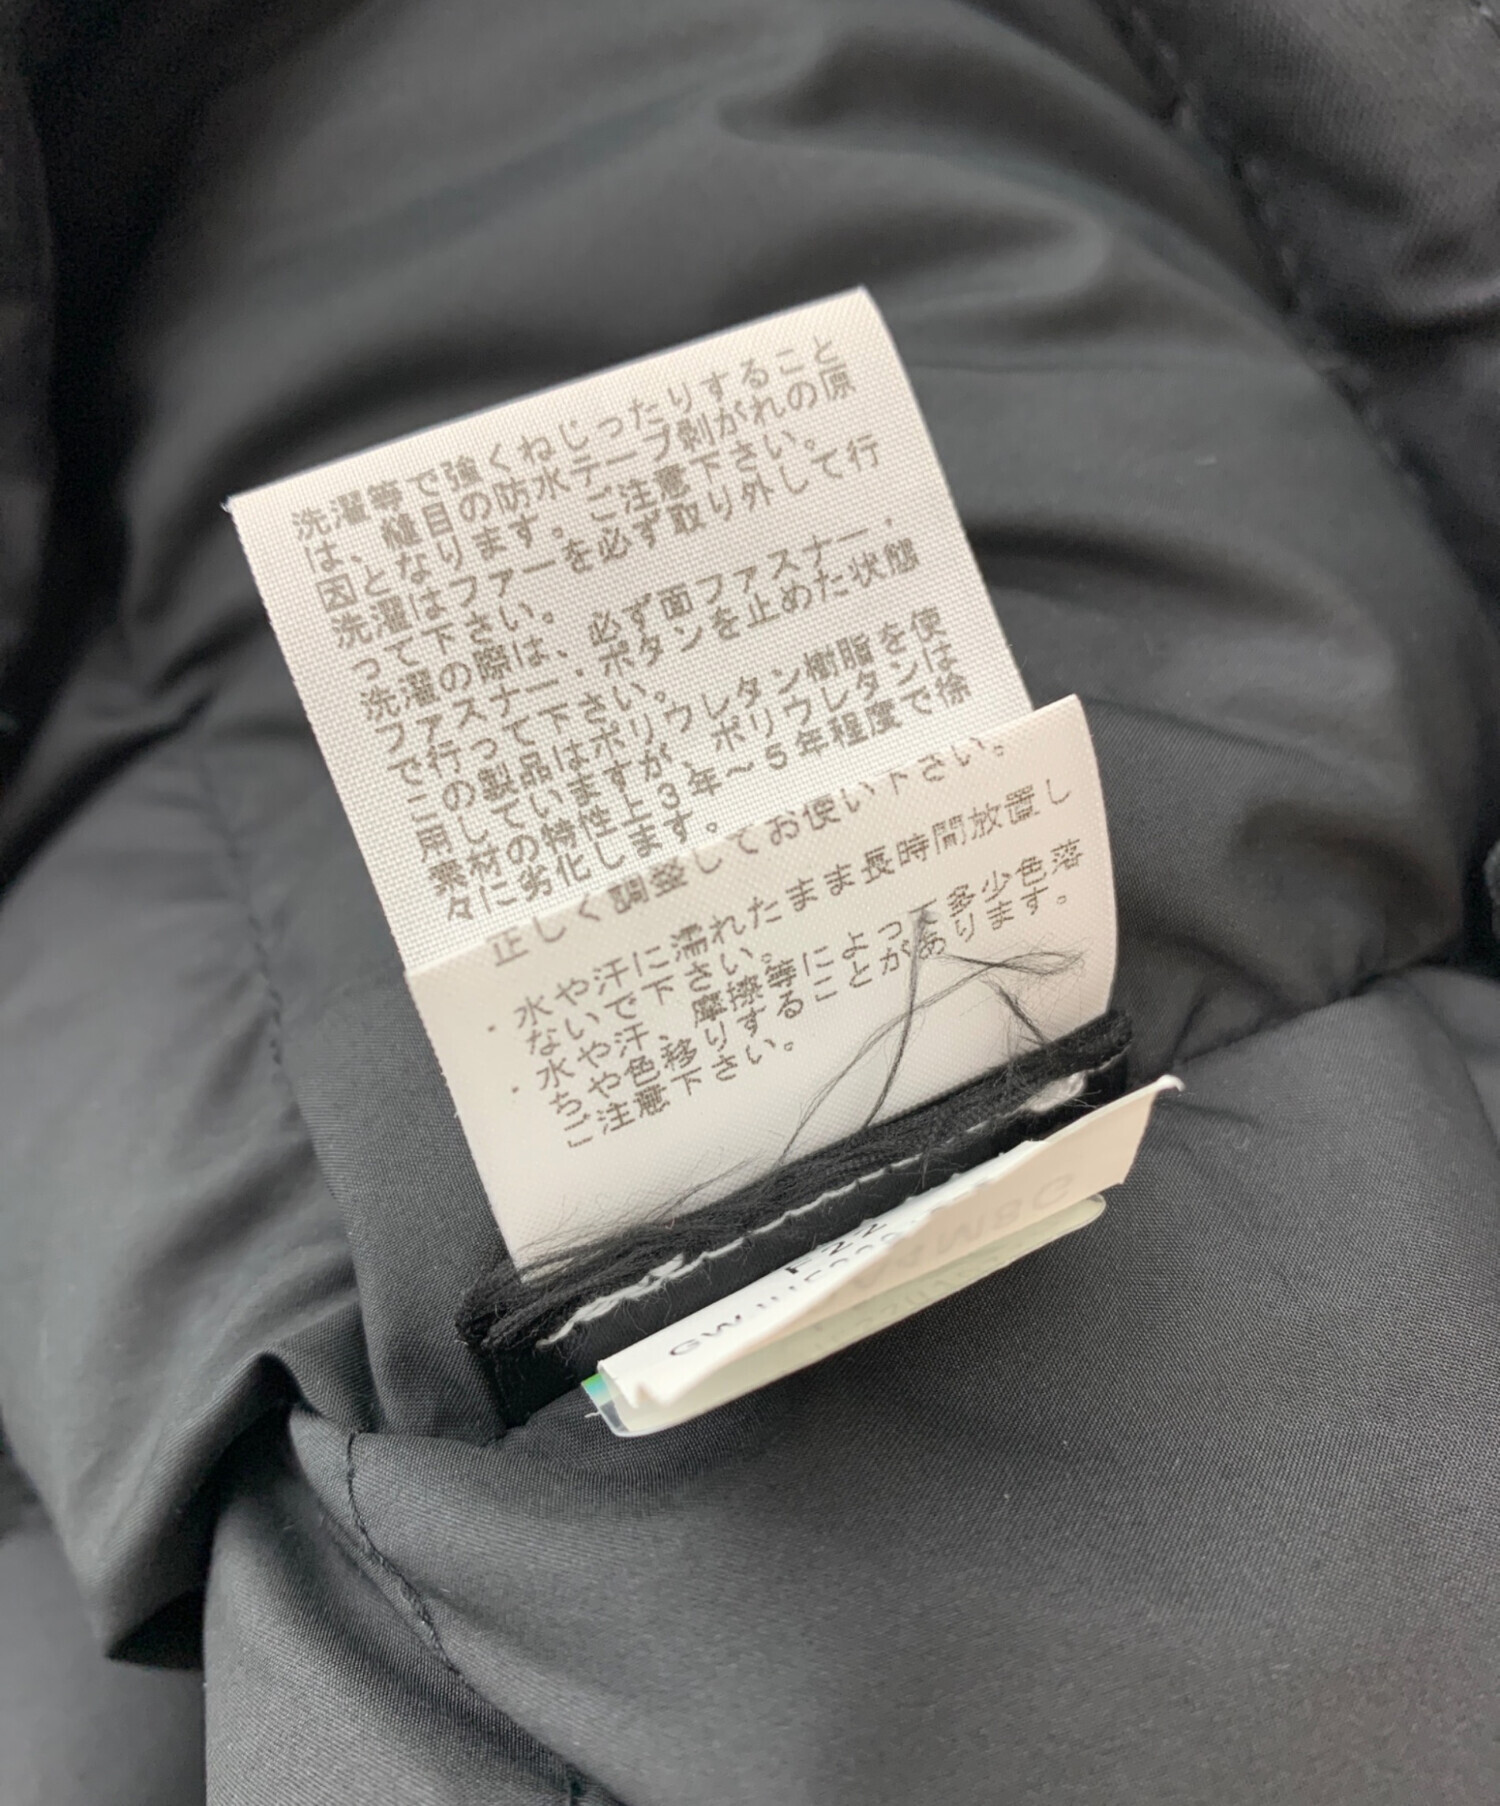 洗濯等で強くねじったりすること
は、縫目の防水テープ剥がれの原
因となります。ご注意下さい。
洗濯はファーを必ず取り外して行
って下さい。
洗濯の際は、必ず面ファスナー・
ファスナー・ボタンを止めた状態
で行って下さい。
この製品はポリウレタン樹脂を使
用していますが、ポリウレタンは
素材の特性上3年～5年程度で徐
々に劣化します。
正しく調整してお使い下さい。
・水や汗に濡れたまま長時間放置し
ないで下さい。
・水や汗、摩擦等によって多少色落
ちや色移りすることがあります。
ご注意下さい。
F22